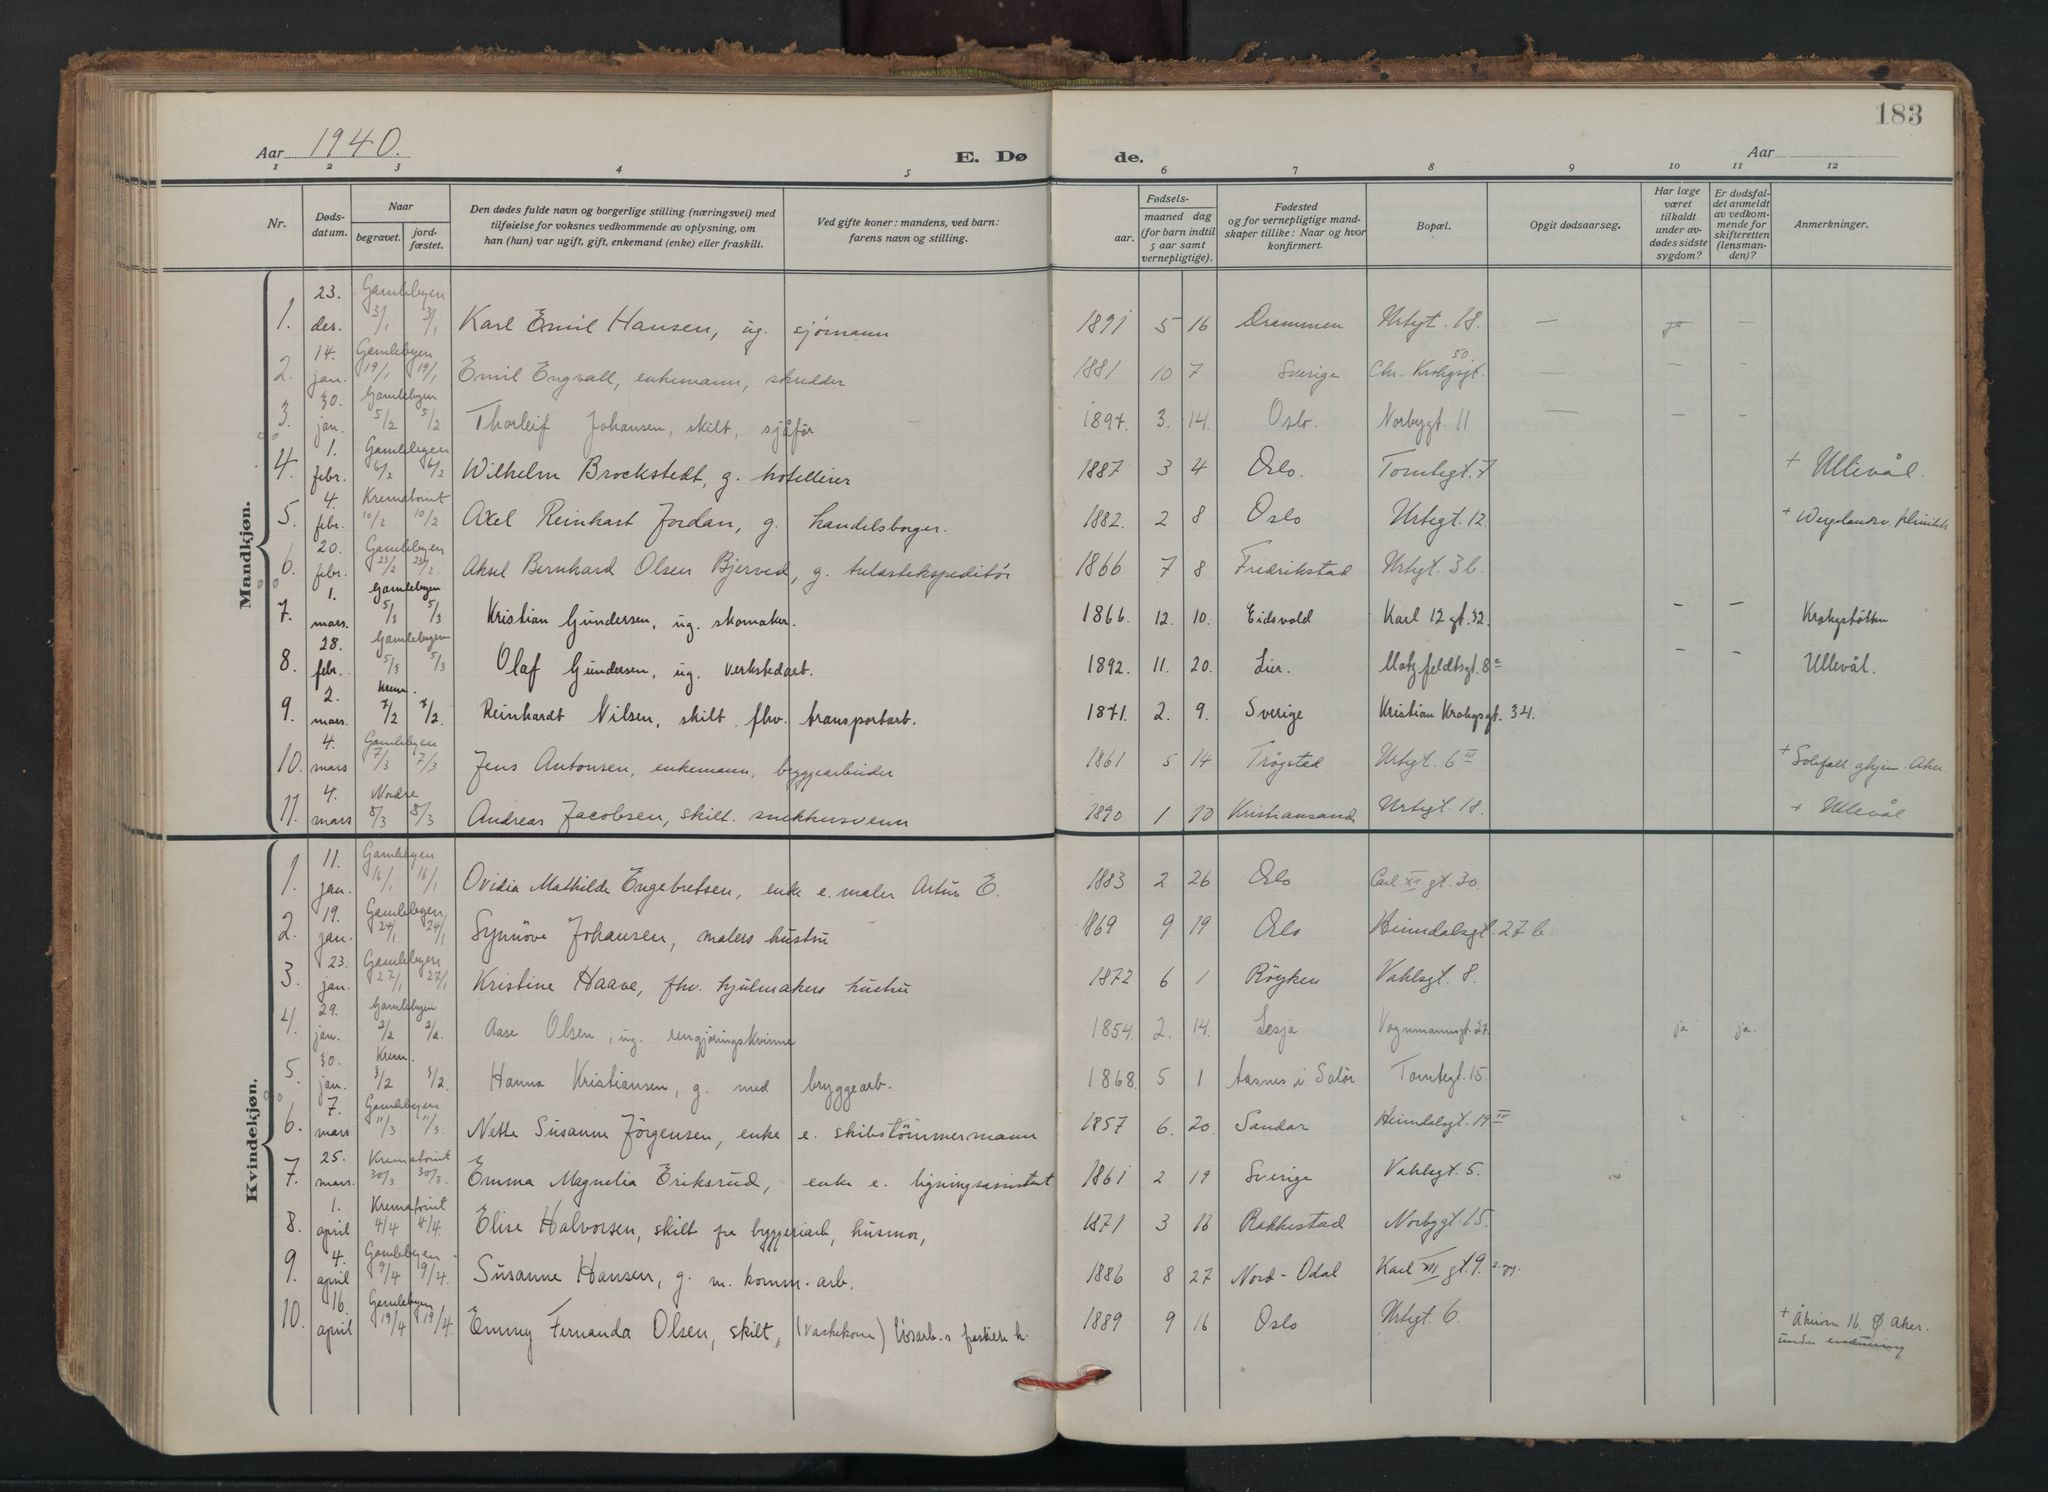 183
Aar 1940.
E. Dø de.
Aar
1 2 3 4 5 6 7 8 9 10 11 12
Nr.
Døds-
datum.
Naar
begravet.
jord-
fæstet.
Den dødes fulde navn og borgerlige stilling (næringsvei) med
tilføielse for voksnes vedkommende av oplysning, om
han (hun) var ugift, gift, enkemand (enke) eller fraskilt.
Ved gifte koner: mandens, ved barn:
farens navn og stilling.
Fødsels-
aar.
maaned dag
(for barn indtil
5 aar samt
vernepligtige).
Fødested
og for vernepligtige mand-
skaper tillike: Naar og hvor
konfirmert.
Bopæl.
Opgit dødsaarsag.
Har læge
været
tilkaldt
under av-
dødes sidste
sygdom?
Er dødsfal-
det anmeldt
av vedkom-
mende for
skifteretten
(lensman-
den)?
Anmerkninger.
Mandkjøn.
23. Gamlebyen
1. des. 3/1 3/1 Karl Emil Hansen, ug. sjømann 1891 5 16 Drammen Urtegt. 18. — ja —
14. Gamlebyen
2. jan. 19/1 19/1 Emil Engvall, enkemann, skredder 1881 10 7 Sverige Chr. Krohgsgt. 50. — — —
30. Gamlebyen
3. jan. 5/2 5/2 Thorleif Johansen, skilt, sjåfør 1897. 3. 14. Oslo. Norbygt. 11 — — —
1. Gamlebyen
4. febr. 6/2 6/2 Wilhelm Brockstedt, g. hotelleier 1887 3 4 Oslo. Tomtegt. 7 + Ullevål.
4. Krematoriet
5. febr. 10/2 10/2 Axel Reinhart Jordan, g. handelsborger. 1882. 2 8 Oslo Urtegt. 12. + Wergelandsv. klinikk
20. Gamlebyen
6. febr. 23/2 23/2. Aksel Bernhard Olsen Bjerved, g. 1866 7 8 Fredrikstad Urtegt. 3b.
1. Gamlebyen
7. mars. 5/3 5/3 Kristian Gundersen, ug. skomaker. 1866. 12. 10. Eidsvold Karl 12 gt. 32. – – Krohgstøtten
28. Gamlebyen
8. febr. 5/3 5/3 Olaf Gundersen, ug. verkstedarb. 1892. 11. 20. Lier. Motzfeldtsgt. 8a – – Ullevål.
2. Krem.
9. mars. 7/2 7/2. Reinhardt Nilsen, skilt, fhv. transportarb. 1871. 2. 9. Sverige Kristian Krohgsgt. 34.
4. Gamlebyen
10. mars 7/3 7/3 Jens Antonsen, enkemann, bryggearbeider 1861 5 14 Trøgstad Urtegt. 6 III + Solfall ghjem. Aker.
4. Nordre
11. mars 8/3 8/3 Andreas Jacobsen, skilt. snekkersvenn 1890 1 10 Kristiansand Urtegt. 18. + Ullevål
Kvindekjøn.
11. Gamlebyen
1. jan. 16/1 16/1 Ovidia Mathilde Engebretsen, enke e. maler Artur E. 1883 2 26 Oslo Carl XII gt. 30.
19. Gamlebyen
2. jan. 24/1 24/1 Synnöve Johansen, malers hustru 1869 9 19 Oslo Heimdalsgt. 27 b.
23. Gamlebyen
3. jan. 27/1 27/1 Kristine Haave, fhv. hjulmakers hustru 1872 6 1 Røyken Vahlsgt. 8.
29. Gamlebyen
4. jan. 2/2 2/2. Aase Olsen, ug. rengjøringskvinne 1854. 2. 14. Lesja Vognmannsgt. ja ja.
30. Krem.
5. jan. 3/2 3/2. Hanna Kristiansen, g. med bryggearb. 1868. 5 1 Aasnes i Solør Tomtegt. 15.
7. Gamlebyen
6. mars 11/3 11/3. Nette Susanne Jörgensen, enke e. skibstømmermann 1857 6. 20. Sandar Heimdalsgt. 19 IV
25. Krematoriet
7. mars. 30/3 30/3. Emma Magnelia Eriksrud, enke e. ligningsassistent 1861 2 19 Sverige Vahlsgt. 5.
1. Krematoriet
8. april 4/4 4/4. Elise Halvorsen, skilt fra byggeriarb, husmor, 1871 3 16 Rakkestad Norbygt. 15.
4. Gamlebyen
9. april 9/4 9/4. Susanne Hansen, g. m. komm. arb. 1886 8 27 Nord-Odal Karl XII gt. 9.
16. Gamlebyen
10. april 19/4 19/4. Emmy Fernanda Olsen, skilt, (vaskekone) løsarb.s 1889 9 16 Oslo Urtegt. 6. + 16. Ø. Aker.
under